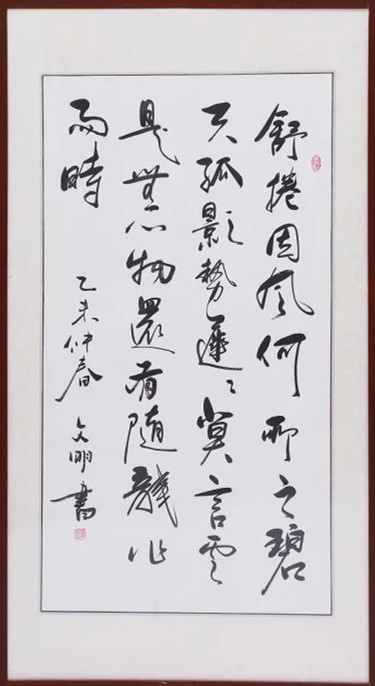 舒捲因風何所之碧
天孤影勢遲〻莫言雲
是無心物還有隨龍作
雨時
乙未仲春 文明書